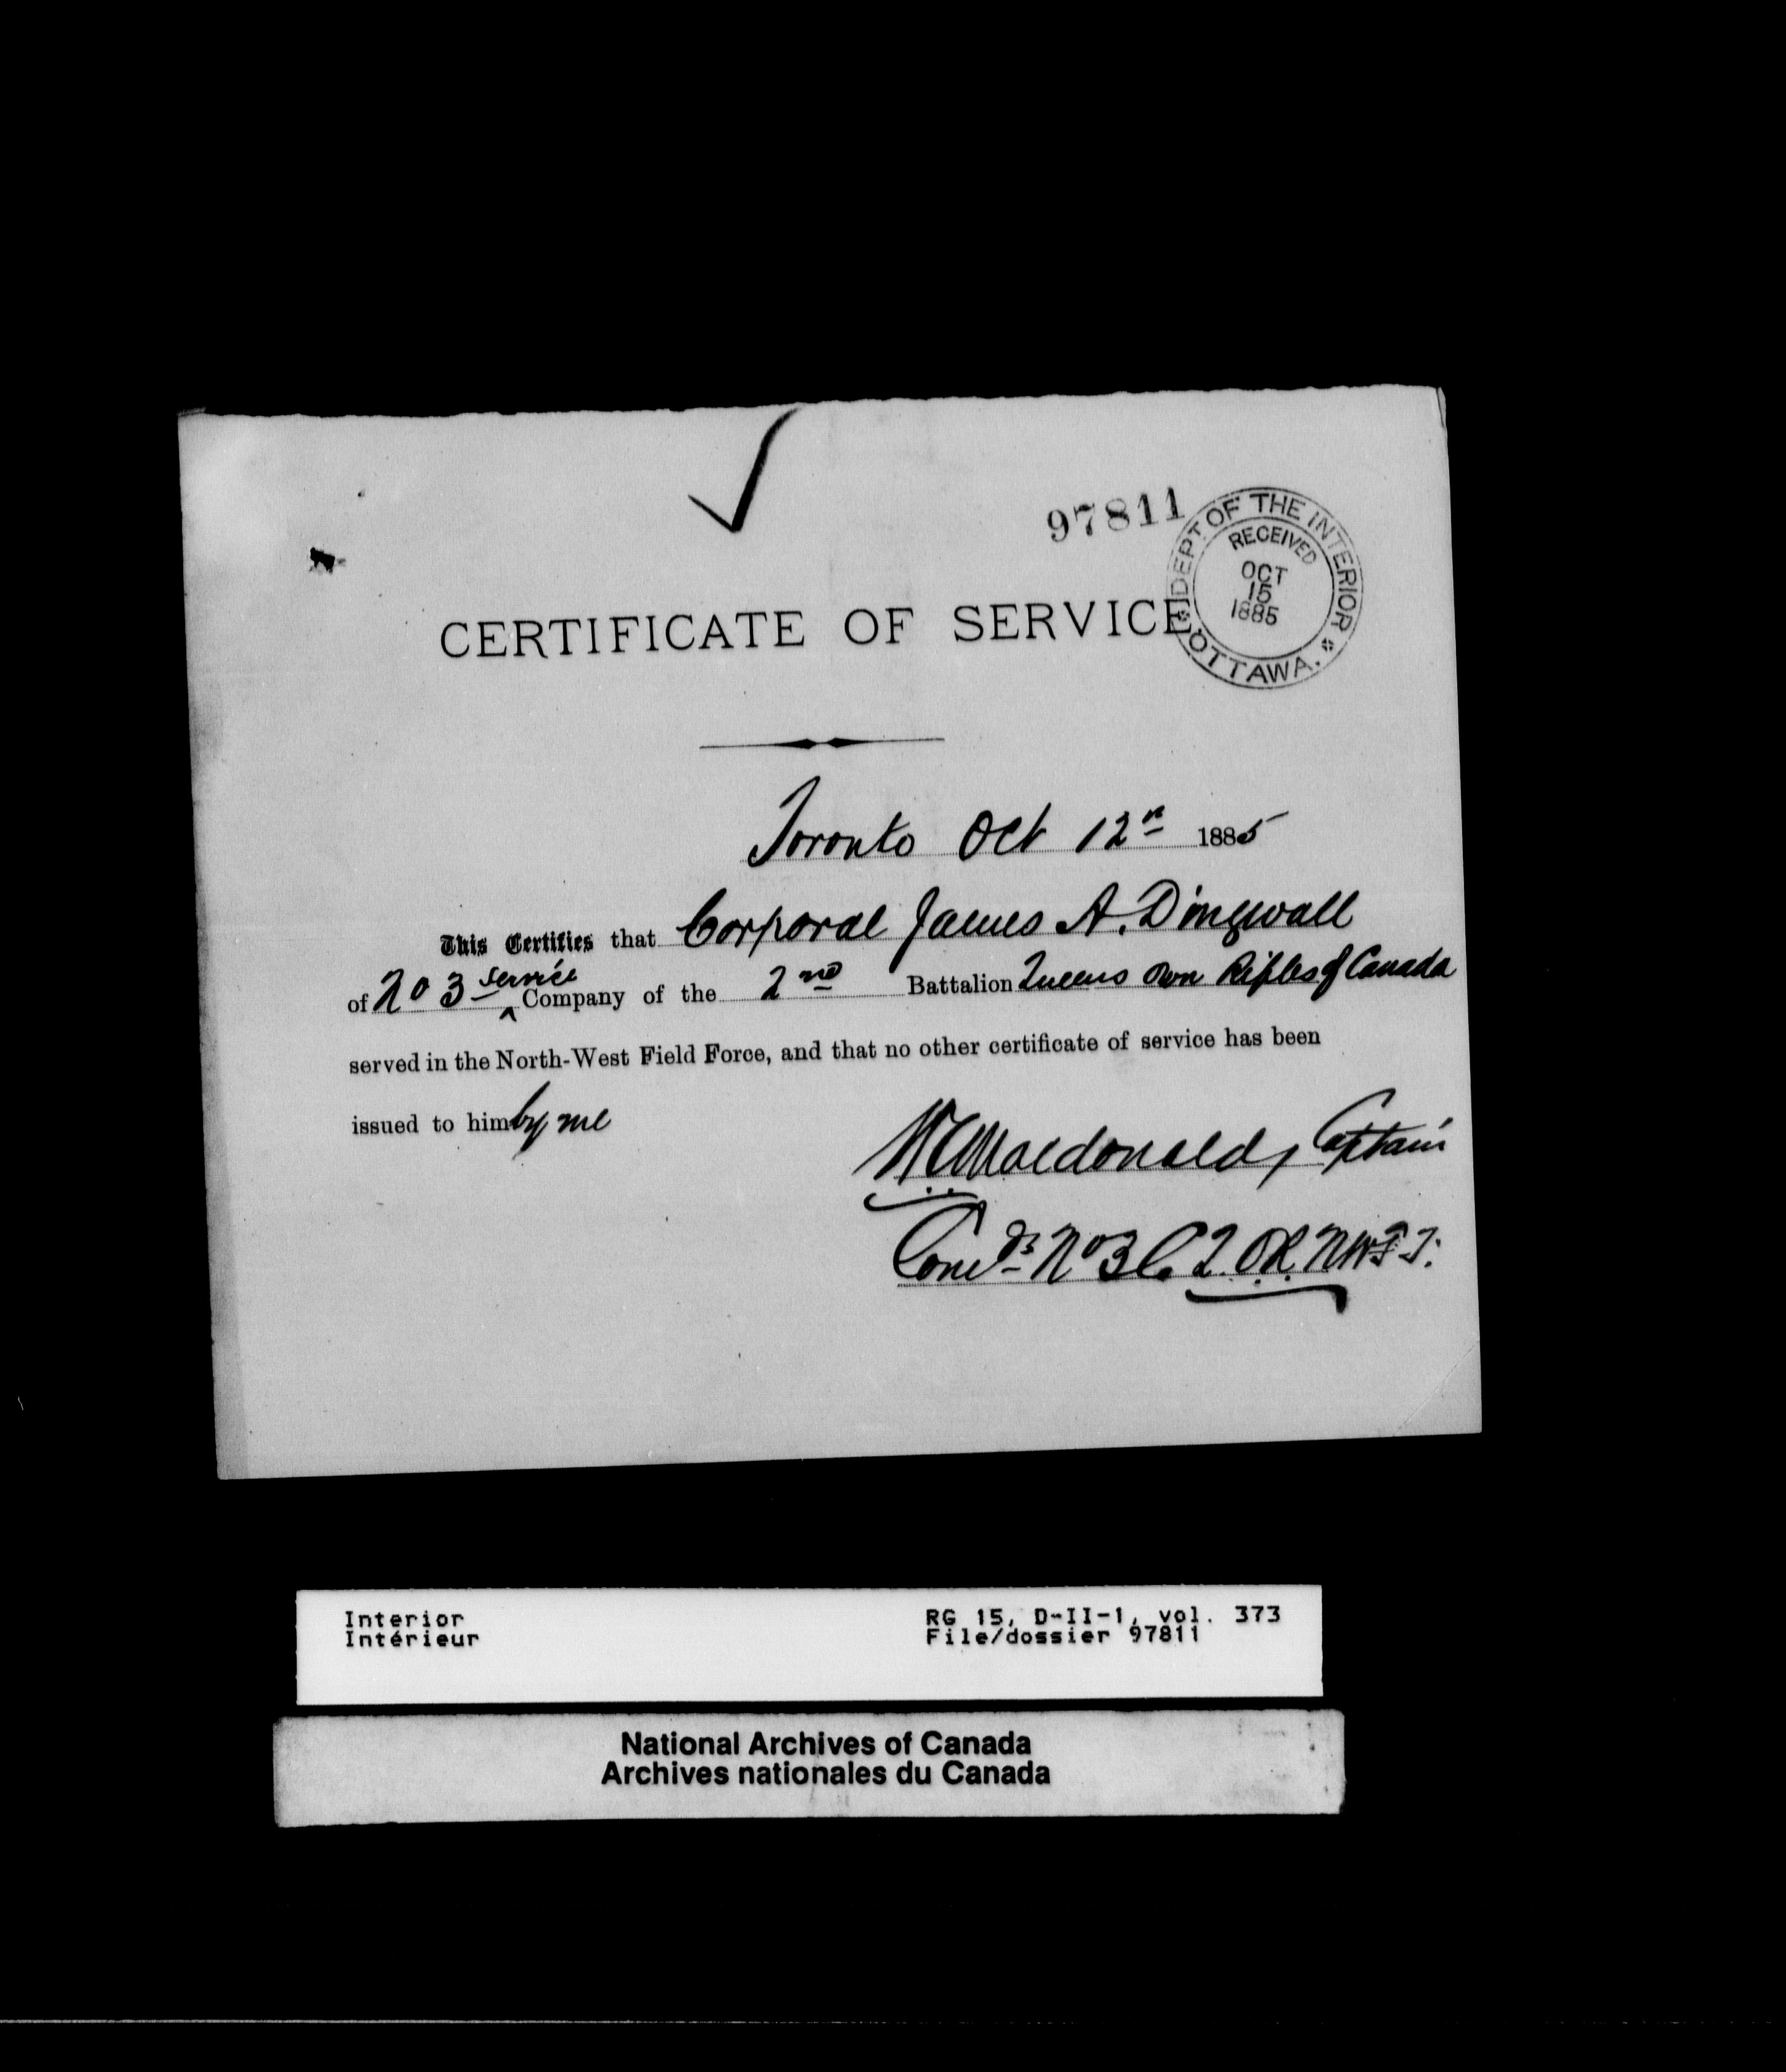 97811
DEPT OF THE INTERIOR
RECEIVED
OCT
15
1885
OTTAWA.
CERTIFICATE OF SERVICE
Toronto Oct 12th 1885
This Certifies that Corporal James A. Dingwall
of No 3 service Company of the 2nd Battalion Queens Own Rifles of Canada
served in the North-West Field Force, and that no other certificate of service has been
issued to him by me
Macdonald, Captain
No 3 Co Q.O.R. N.W.F.F.
Interior
Intérieur
RG 15, D-II-1, vol. 373
File/dossier 97811
National Archives of Canada
Archives nationales du Canada